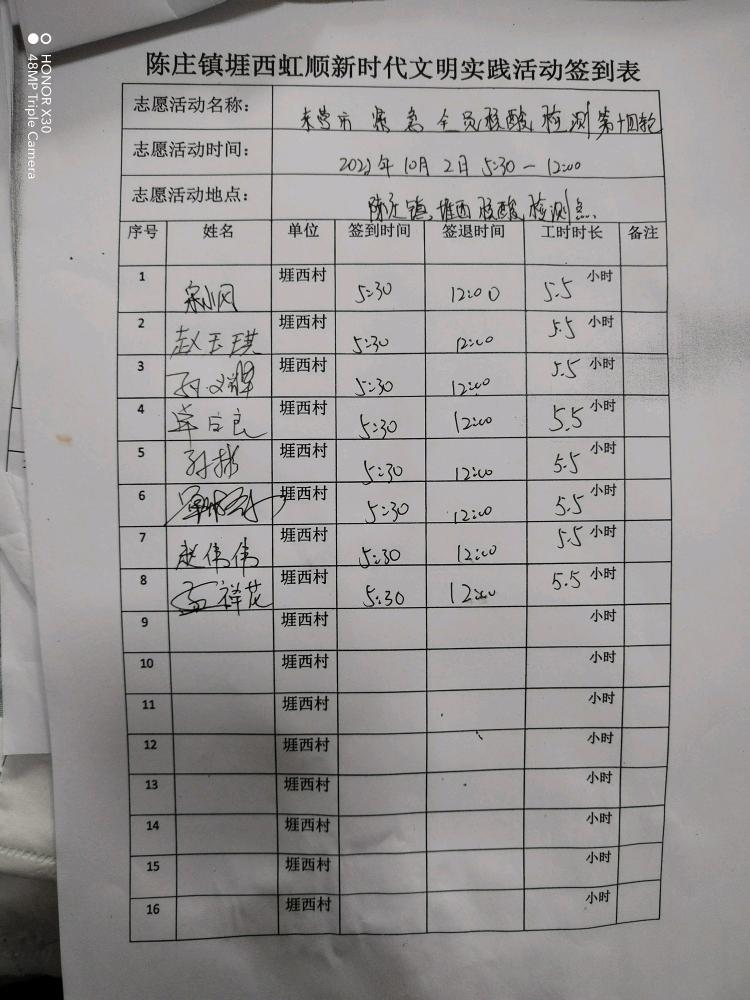 HONOR X30
48MP Triple Camera
陈庄镇堐西虹顺新时代文明实践活动签到表
志愿活动名称： 东营市 紧急 全员核酸检测第十四轮
志愿活动时间： 2022年10月2日 5:30-12:00
志愿活动地点： 陈庄镇堐西核酸检测点
序号 姓名 单位 签到时间 签退时间 工时时长 备注
1 堐西村 5:30 12:00 5.5 小时
2 赵玉琪 堐西村 5:30 12:00 5.5 小时
3 孙文辉 堐西村 5:30 12:00 5.5 小时
4 堐西村 5:30 12:00 5.5 小时
5 孙彬 堐西村 5:30 12:00 5.5 小时
6 堐西村 5:30 12:00 5.5 小时
7 赵伟伟 堐西村 5:30 12:00 5.5 小时
8 祥花 堐西村 5:30 12:00 5.5 小时
9 堐西村 小时
10 堐西村 小时
11 堐西村 小时
12 堐西村 小时
13 堐西村 小时
14 堐西村 小时
15 堐西村 小时
16 堐西村 小时